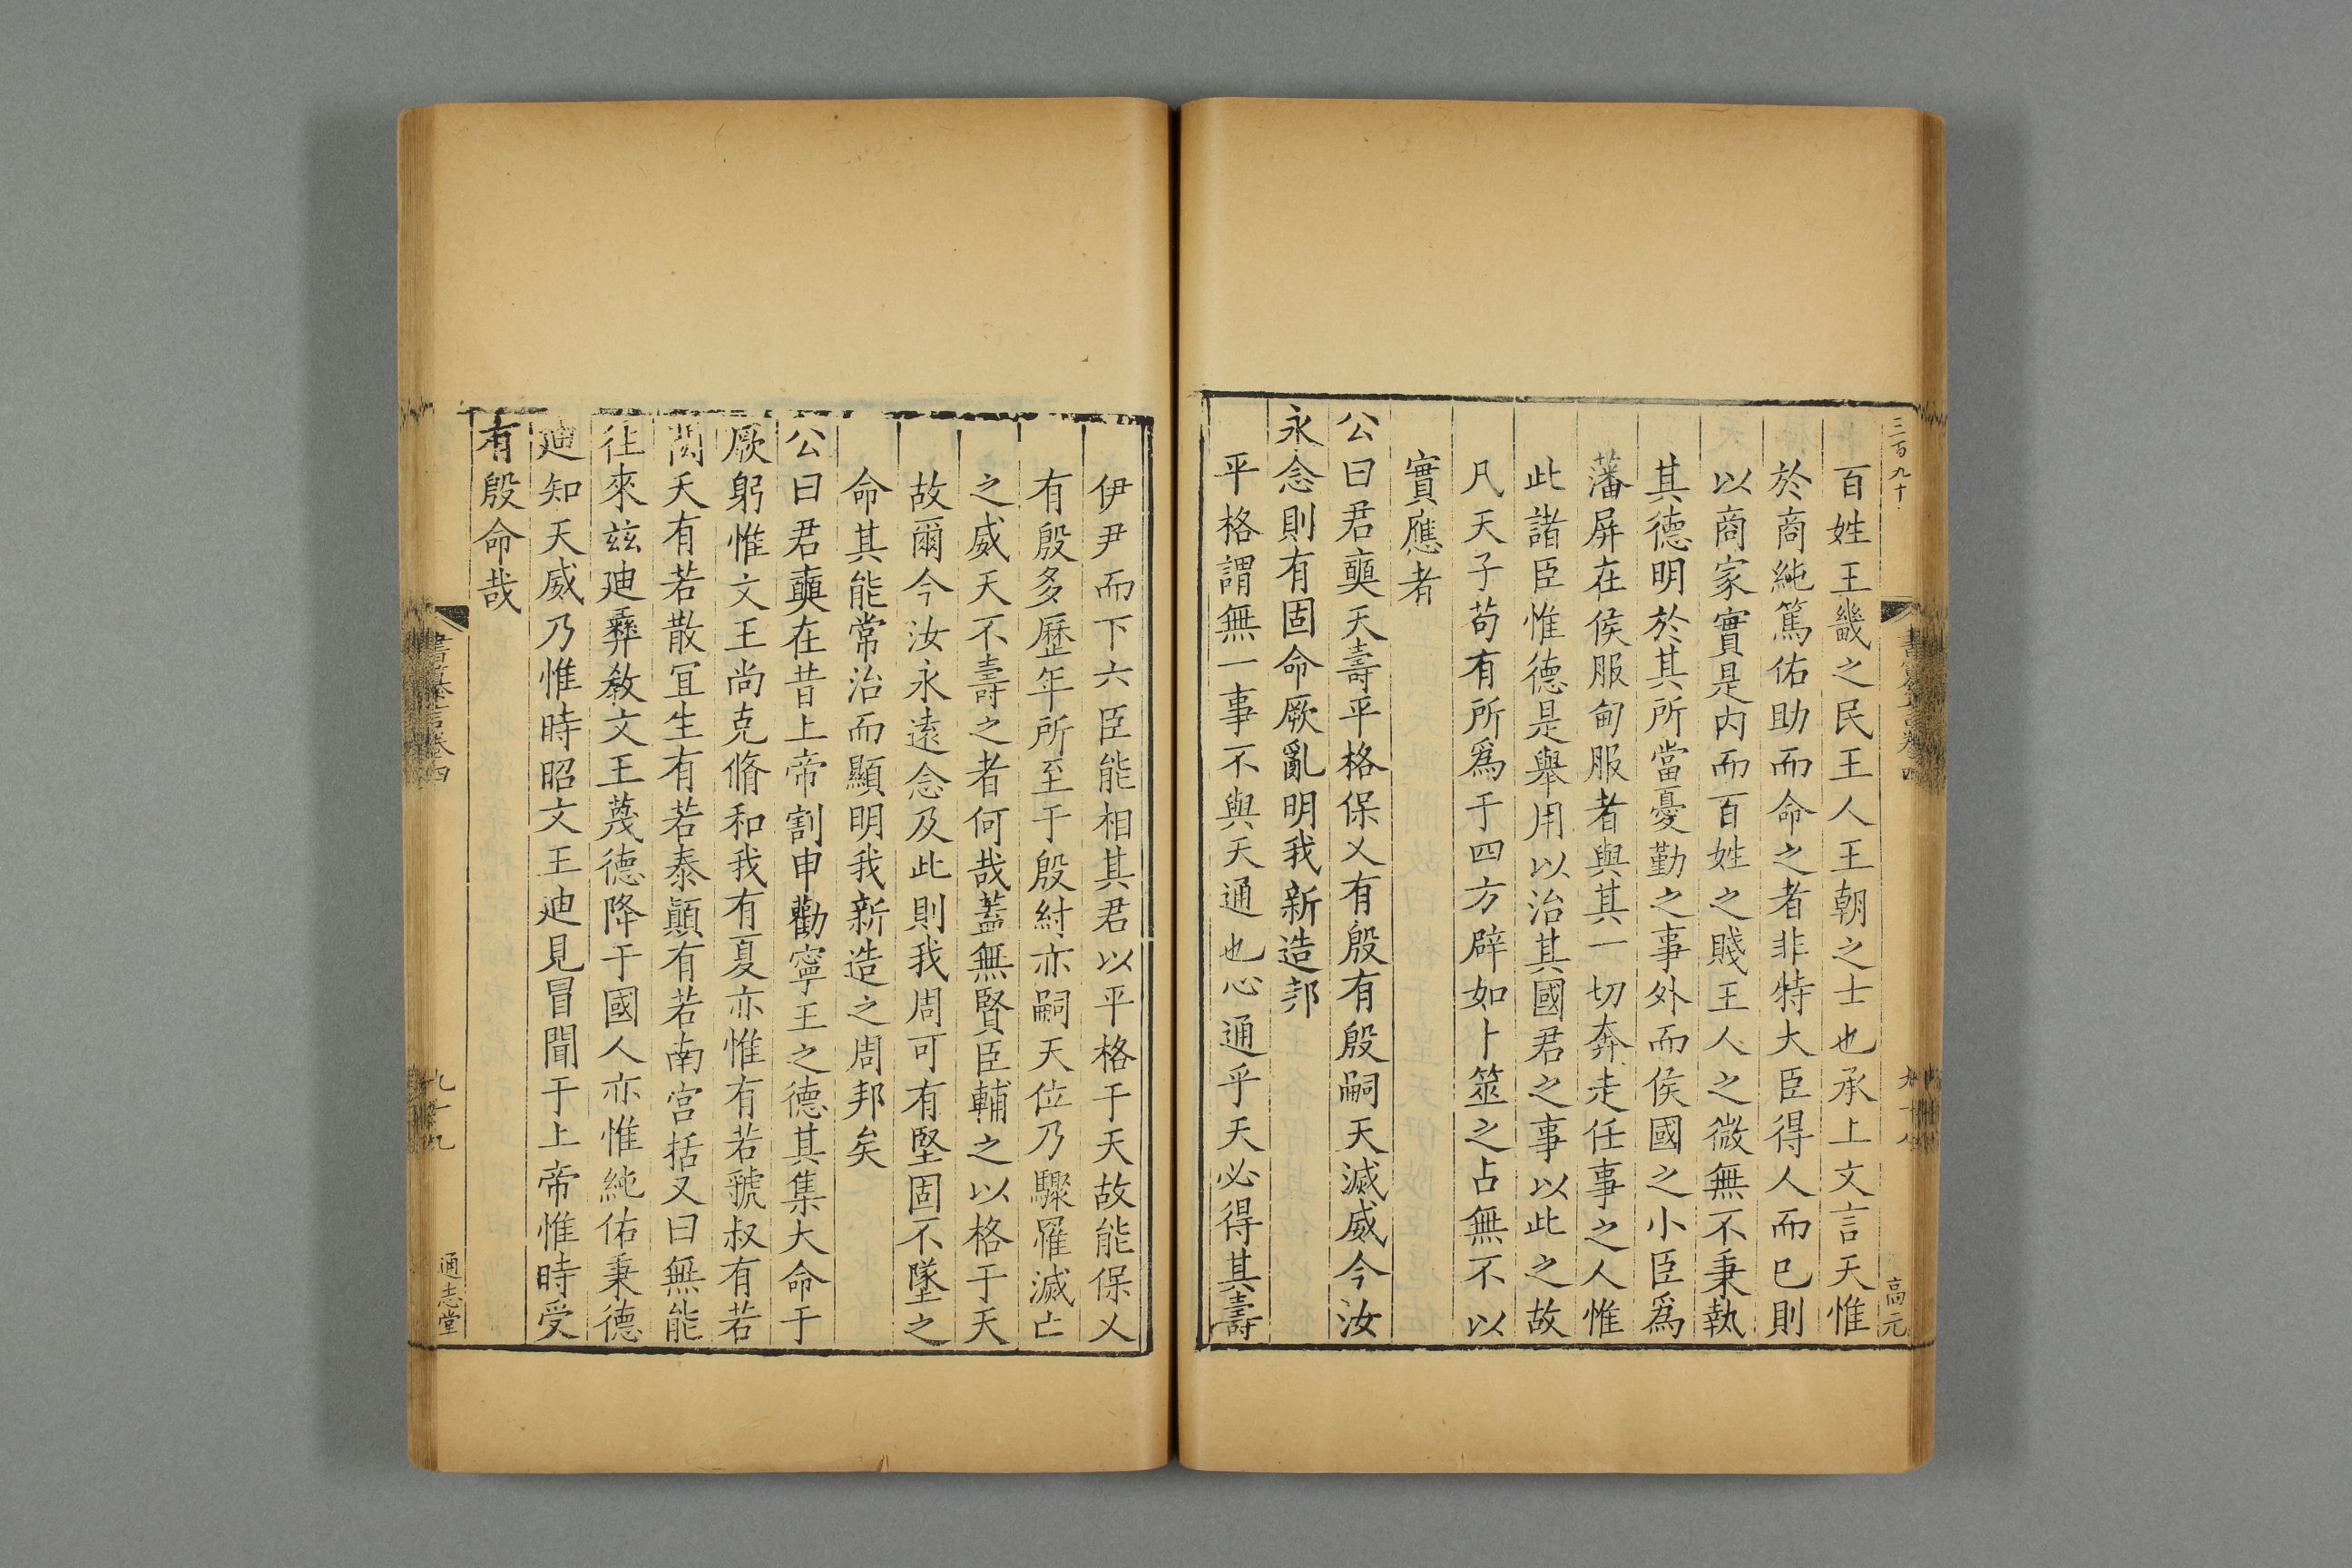 三百九十
高元
百姓王畿之民王人王朝之士也承上文言天惟
於商純篤佑助而命之者非特大臣得人而已則
以商家實是内而百姓之賤王人之微無不秉執
其德明於其所當憂勤之事外而侯國之小臣爲
藩屏在侯服甸服者與其一切奔走任事之人惟
此諸臣惟德是舉用以治其國君之事以此之故
凡天子苟有所爲于四方辟如卜筮之占無不以
實應者
公曰君奭天壽平格保乂有殷有殷嗣天滅威今汝
永念則有固命厥亂明我新造邦
平格謂無一事不與天通也心通乎天必得其壽
伊尹而下六臣能相其君以平格于天故能保乂
有殷多歷年所至于殷紂亦嗣天位乃驟罹滅亡
之威天不壽之者何哉蓋無賢臣輔之以格于天
故爾今汝永遠念及此則我周可有堅固不墜之
命其能常治而顯明我新造之周邦矣
公曰君奭在昔上帝割申勸寧王之德其集大命于
厥躬惟文王尚克脩和我有夏亦惟有若虢叔有若
閎夭有若散宜生有若泰顚有若南宫括又曰無能
往來兹迪彝教文王蔑德降于國人亦惟純佑秉德
迪知天威乃惟時昭文王迪見冒聞于上帝惟時受
有殷命哉
卷四
九十九
通志堂